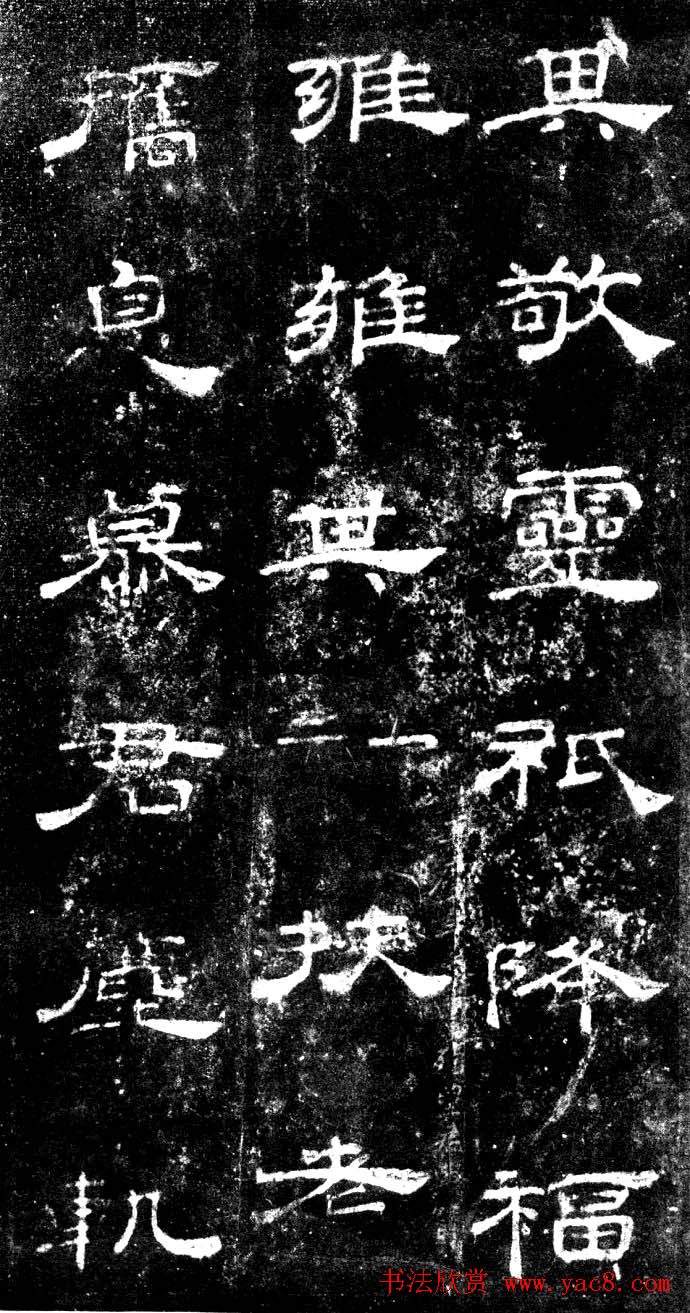 異敬靈祇降福
雍雍其扶老
攜息慕君軌
书法欣赏 www.yac8.com